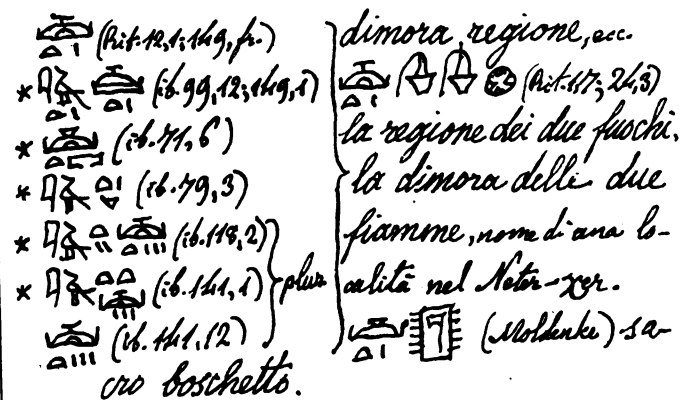 (Rit. 12,1; 149, fr.)
* (ib. 99, 12; 149, 1)
* (ib. 71, 6)
* (ib. 79, 3)
* (ib. 118, 2)
* (ib. 141, 1) plur
(ib. 141, 12)
dimora, regione, ecc.
(Rit. 17; 24, 3)
la regione dei due fuochi,
la dimora delle due
fiamme, nome di una lo-
calità nel Neter-χer.
(Moldenke) sa-
cro boschetto.